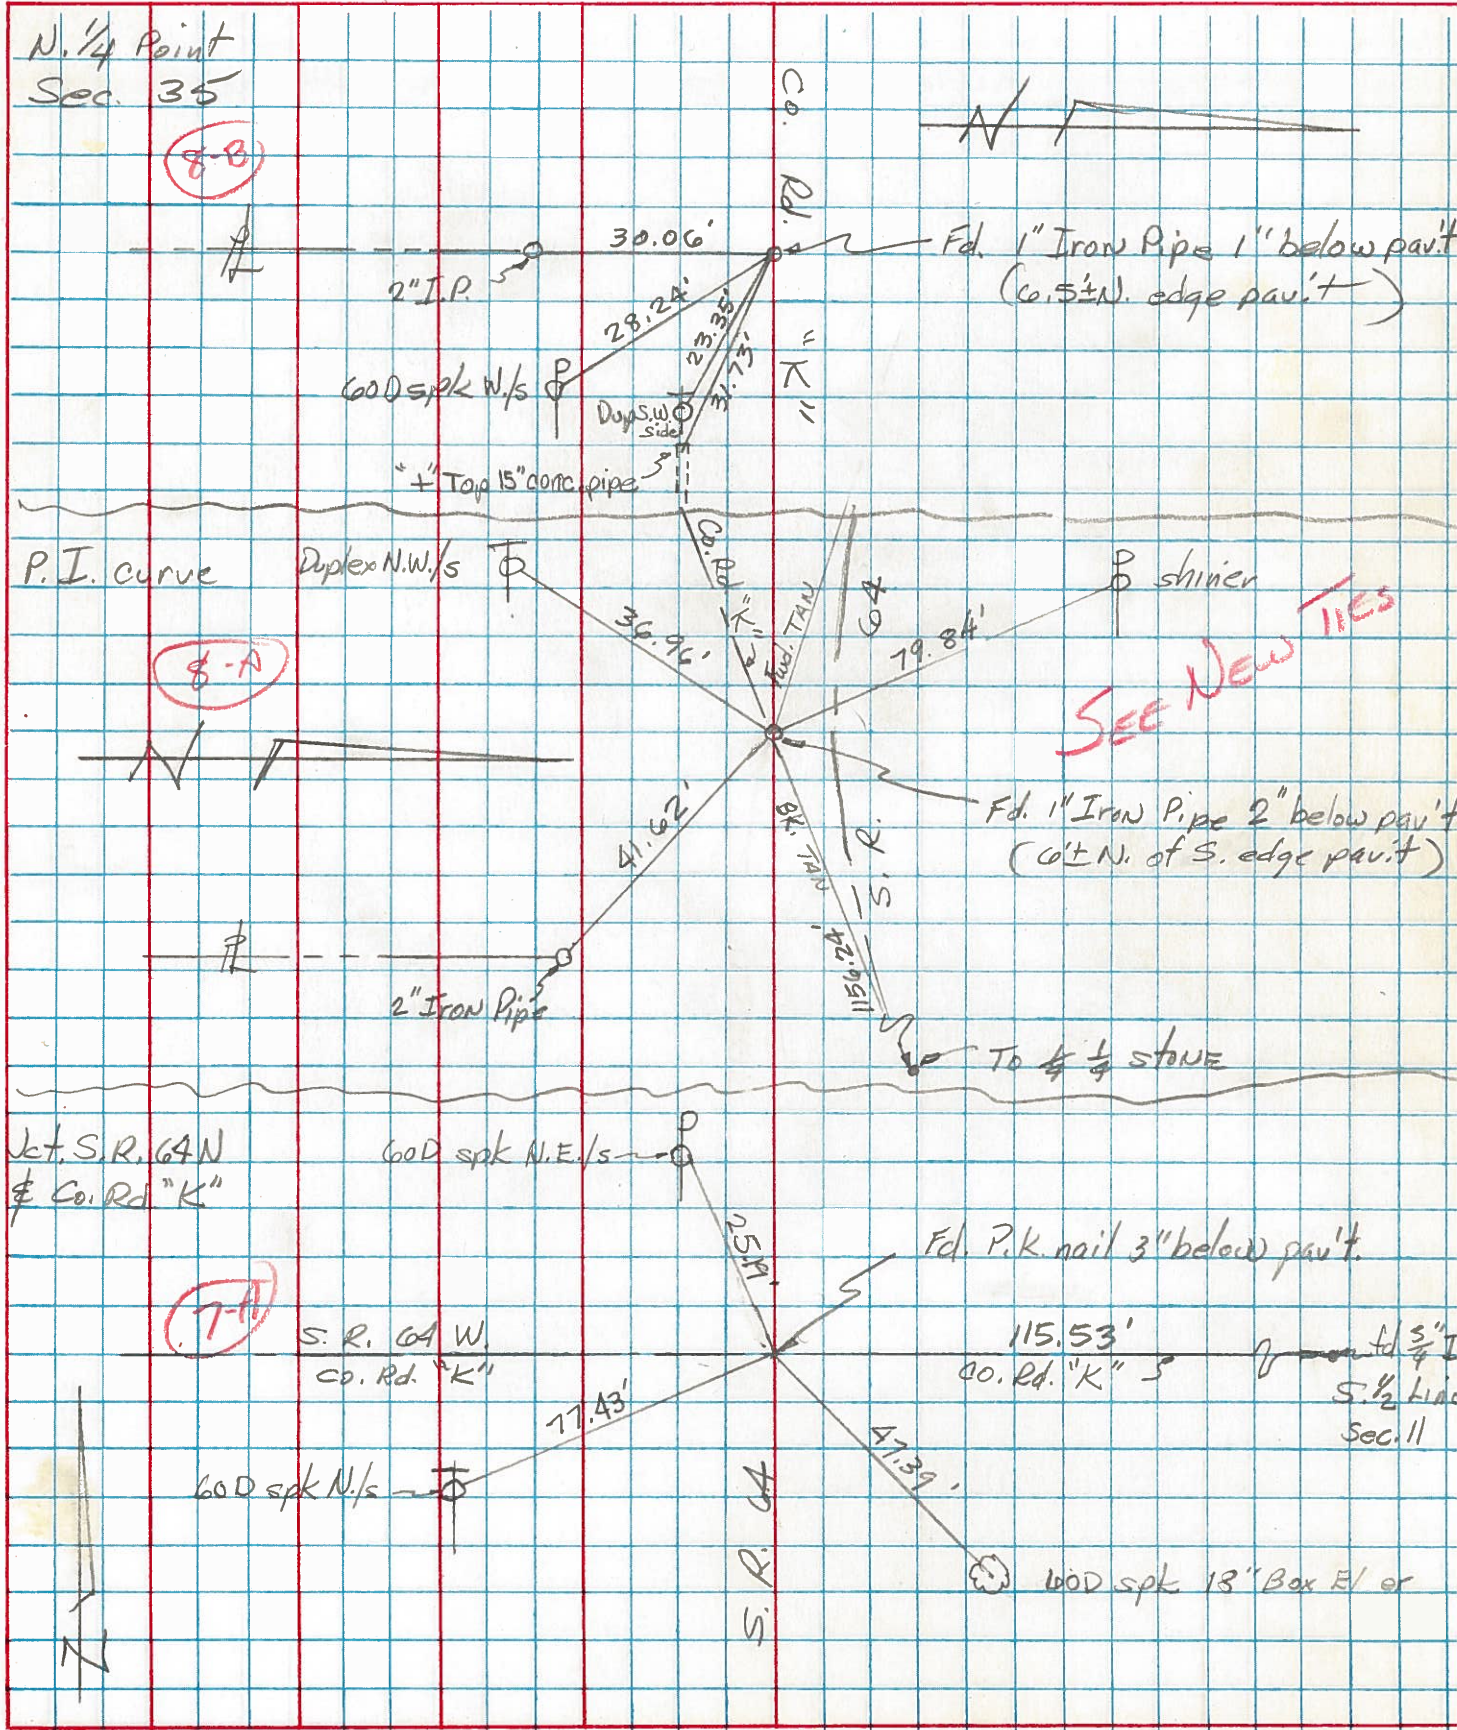 N. 1/4 Point
Sec. 35
8-B
Co. Rd. "K"
N
30.06'
Fd. 1" Iron Pipe 1" below pav't
(6.5'± N. edge pav't)
2" I.P.
28.24'
23.35'
31.73'
60D spk W./s
Dup S.W.
side
"+" Top 15" conc. pipe
P.I. curve
Duplex N.W./s
Co. Rd "K"
Fwd. TAN
64
shiner
36.96'
79.84'
SEE NEW TIES
8-A
N
Fd. 1" Iron Pipe 2" below pav't
(6'± N. of S. edge pav't)
41.62'
BK. TAN
S. R.
1156.24'
2" Iron Pipe
To 1/4 stone
Jct. S.R. 64 N
& Co. Rd. "K"
60D spk N.E./s
25.19'
Fd. P.K. nail 3" below pav't.
7-A
S. R. 64 W.
Co. Rd. "K"
115.53'
Co. Rd. "K"
fd 3/4" I
S. 1/2 Line
Sec. 11
77.43'
47.39'
60D spk N./s
S. R. 64
60D spk 18" Box El er
N